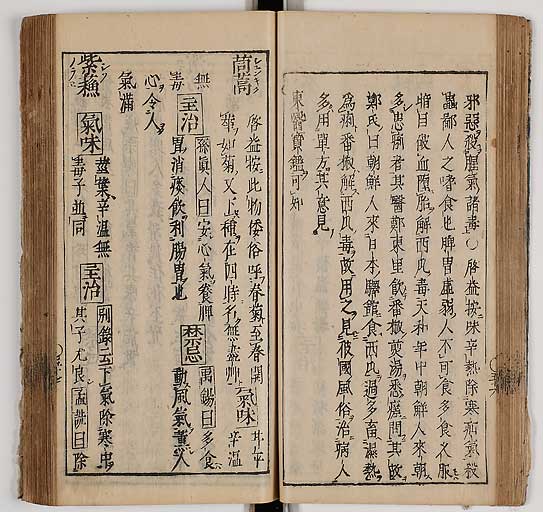 邪惡殺腥氣諸毒〇啓益按味辛熱除寒痾氣殺
蟲鄙人之嗜食也脾胃虛弱人不可食多食衣服
暗目破血墮胎解西瓜毒天和年中朝鮮人來朝
多患痢者其醫鄭東里飲番椒煎湯悉瘥問其故
鄭氏曰朝鮮人來日本聯館食西瓜過多畜濕熱
為痢番椒解西瓜毒故用之見彼國風俗治病人
多用單方其意見
東醫寶鑑可知
茼蒿 シュンキク
啓益按此物倭俗呼春菊至春開
華如菊又上種在四時名無盡艸 氣味 甘平辛溫
無毒 主治 孫眞人曰安心氣養脾
胃消痰飲利腸胃也 禁忌 禹錫曰多食
動風氣薰人
心令人
氣滿
紫蘓 シソ 氣味 莖葉辛溫無
毒子並同 主治 別錄云下氣除寒中
其子尤良 孟詵曰除